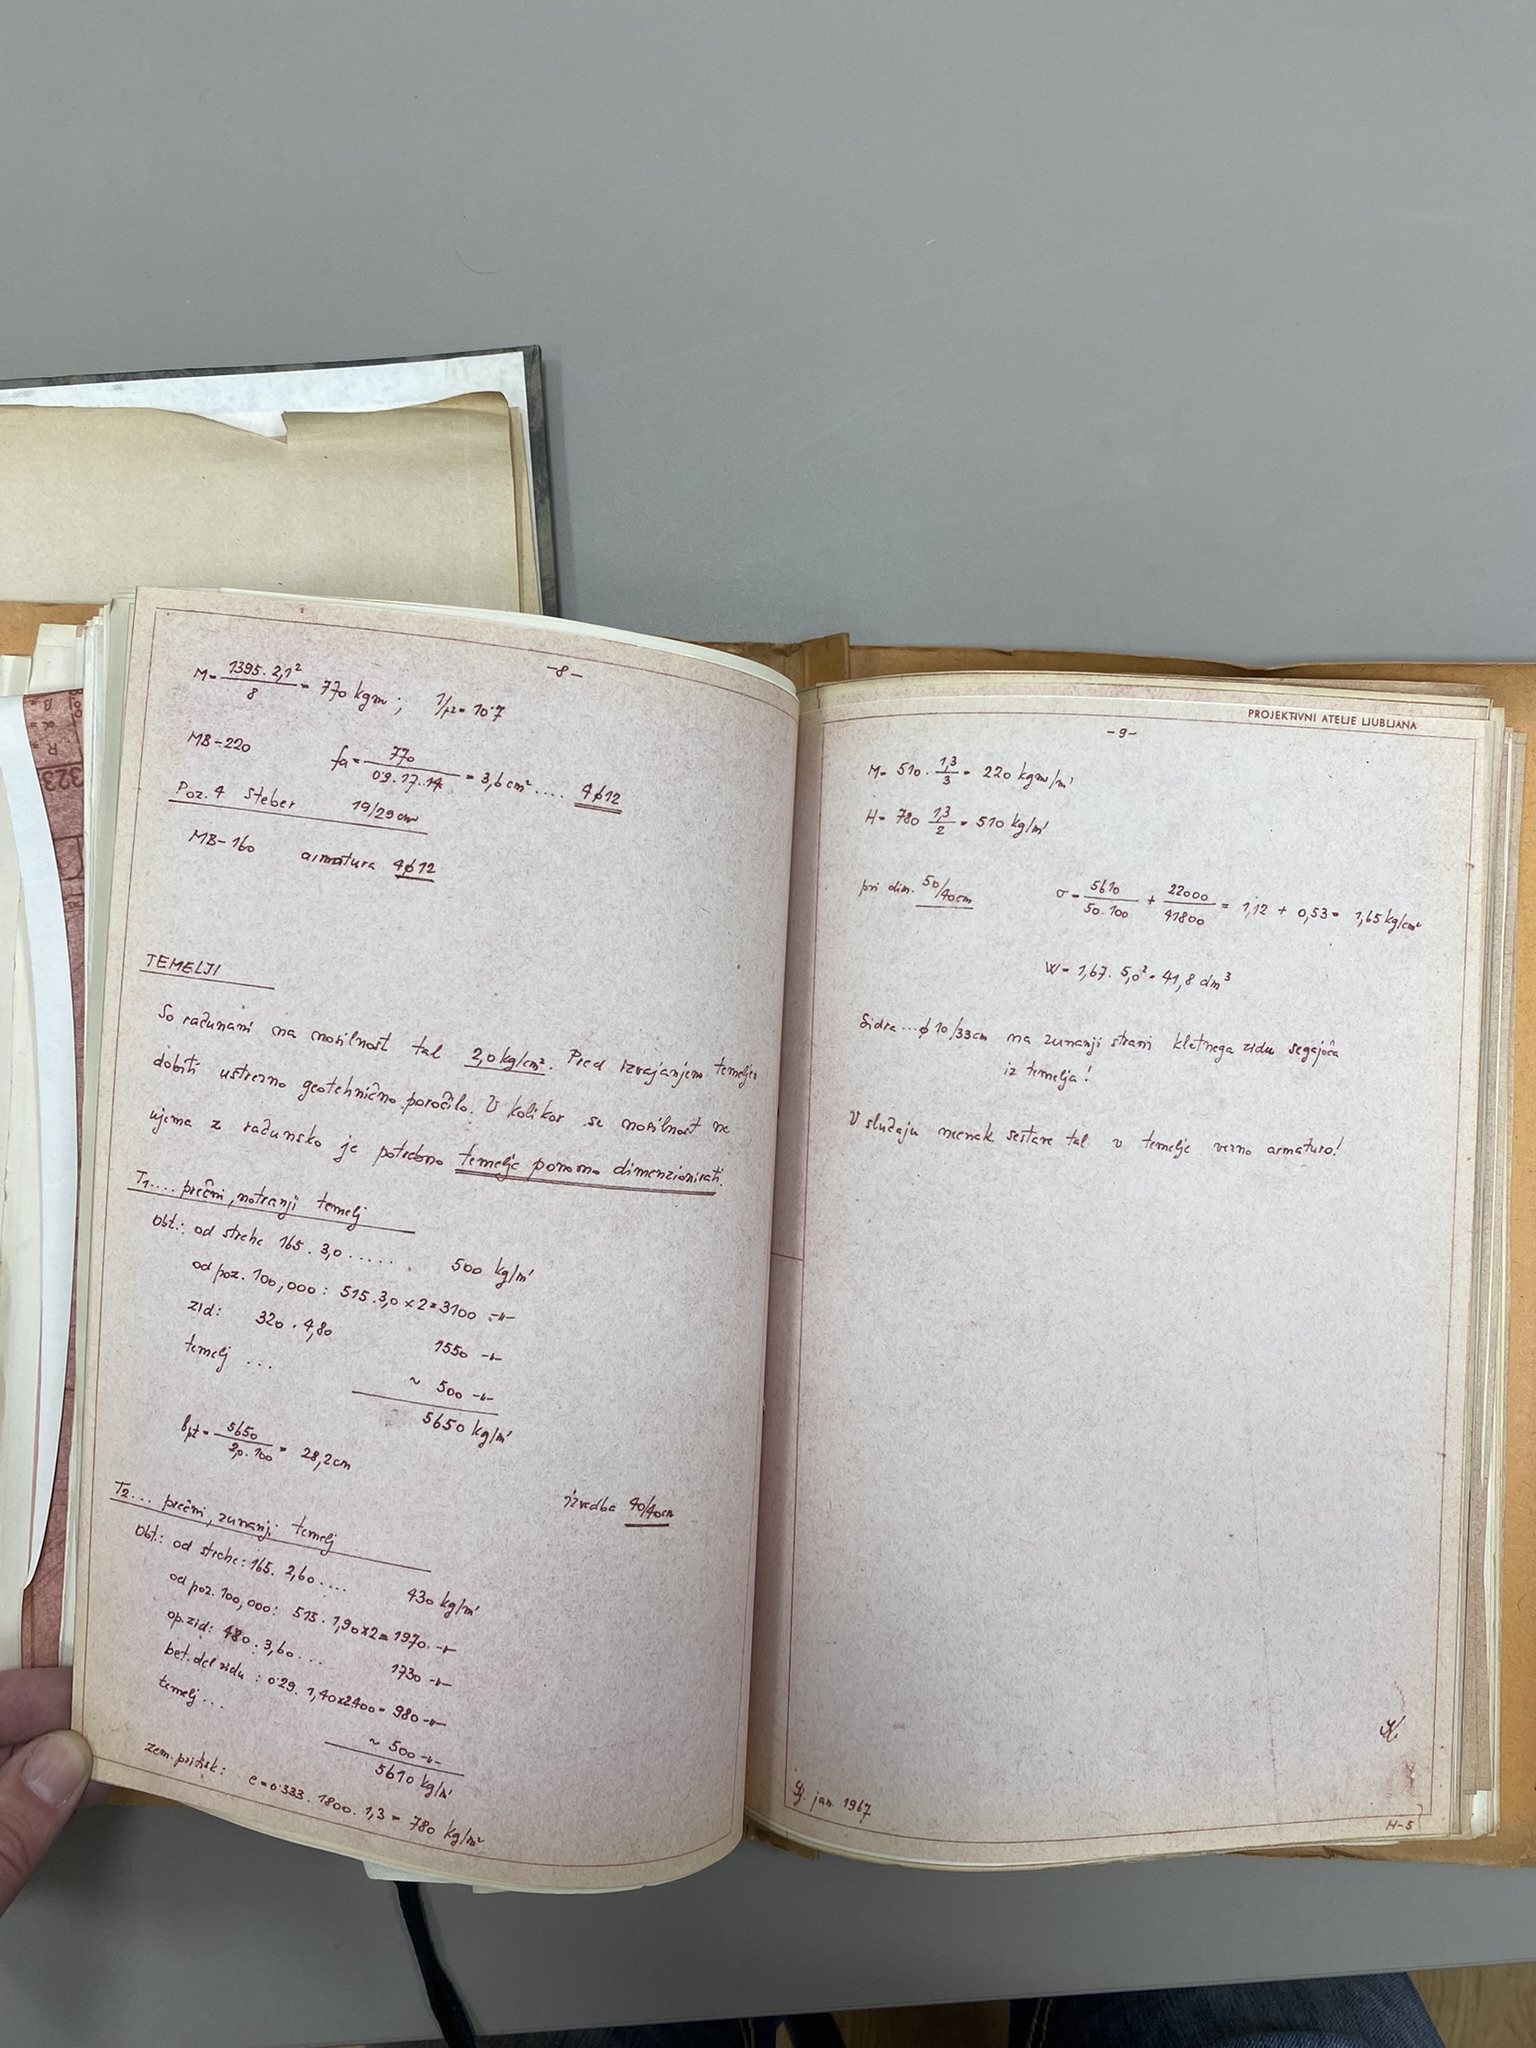 -8-
M = 1395 · 2,1² / 8 = 770 kgm ; 1/r² = 10·7
MB-220 fa = 770 / 0,9 · 17 · 14 = 3,6 cm² .... 4ϕ12
Poz. 4 steber 19/29 cm
MB-160 armatura 4ϕ12
TEMELJI
So računani na nosilnost tal 2,0 kg/cm². Pred izvajanjem temeljev
dobiti ustrezno geotehnično poročilo. V kolikor se nosilnost ne
ujema z računsko je potrebno temelje ponovno dimenzionirati.
T1 .... prečni, notranji temelj
Obt.: od strehe 165 · 3,0 ...... 500 kg/m'
od poz. 100, 000 : 515 · 3,0 × 2 = 3100 -"-
zid: 320 · 4,80 1550 -"-
temelj ... ~ 500 -"-
5650 kg/m'
bpt = 5650 / 2,0 · 100 = 28,2 cm
izvedba 40/40 cm
T2 ... prečni, zunanji temelj
Obt.: od strehe: 165 · 2,60 .... 430 kg/m'
od poz. 100, 000: 515 · 1,90 × 2 = 1970 -"-
op. zid: 480 · 3,60 ... 1730 -"-
bet. del zidu : 0,29 · 1,40 × 2400 = 980 -"-
temelj ... ~ 500 -"-
5610 kg/m'
zem. pritisk : e = 0,333 · 1800 · 1,3 = 780 kg/m²
PROJEKTIVNI ATELJE LJUBLJANA
-9-
M = 510 · 1,3/3 = 220 kgm/m'
H = 780 1,3/2 = 510 kg/m'
pri dim. 50/40 cm σ = 5610 / 50 · 100 + 22000 / 41800 = 1,12 + 0,53 = 1,65 kg/cm²
W = 1,67 · 5,0² = 41,8 dm³
Sidra ... ϕ 10/33 cm na zunanji strani kletnega zidu segajoča
iz temelja!
V slučaju neenak sestave tal v temelje vezno armaturo!
Lj. jan. 1967
H-5